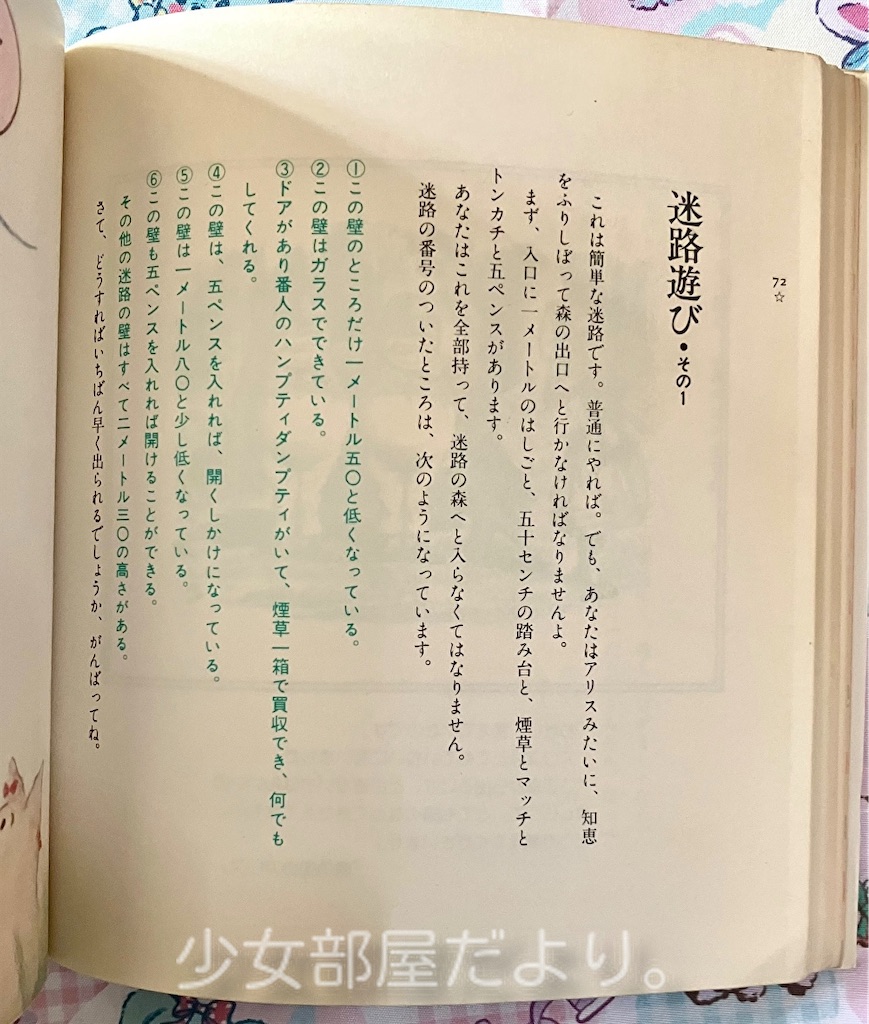 72
☆
迷路遊び・その1
これは簡単な迷路です。普通にやれば。でも、あなたはアリスみたいに、知恵
をふりしぼって森の出口へと行かなければなりませんよ。
まず、入口に一メートルのはしごと、五十センチの踏み台と、煙草とマッチと
トンカチと五ペンスがあります。
あなたはこれを全部持って、迷路の森へと入らなくてはなりません。
迷路の番号のついたところは、次のようになっています。
①この壁のところだけ一メートル五〇と低くなっている。
②この壁はガラスでできている。
③ドアがあり番人のハンプティダンプティがいて、煙草一箱で買収でき、何でも
してくれる。
④この壁は、五ペンスを入れれば、開くしかけになっている。
⑤この壁は一メートル八〇と少し低くなっている。
⑥この壁も五ペンスを入れれば開けることができる。
その他の迷路の壁はすべて二メートル三〇の高さがある。
さて、どうすればいちばん早く出られるでしょうか、がんばってね。
少女部屋だより。